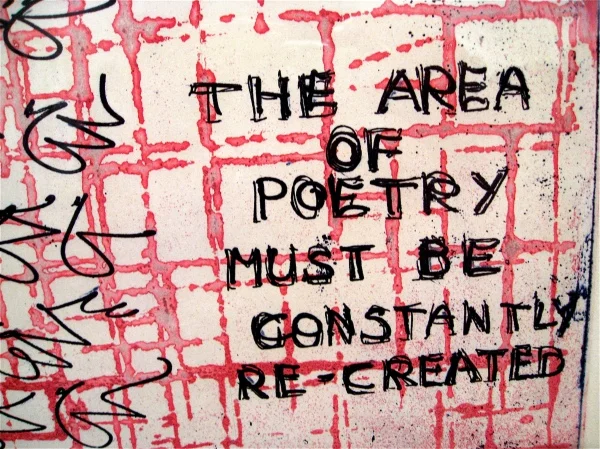 THE AREA
OF
POETRY
MUST BE
CONSTANTLY
RE-CREATED